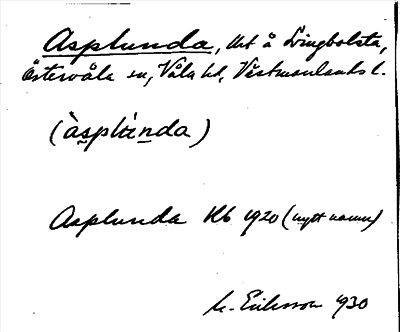 Asplunda, tht å Svingbolsta,
Östervåla sn, Våla hd, Västmanlands l.
(àsplùnda)
Asplunda Kb 1920 (nytt namn)
M. Eriksson 1930